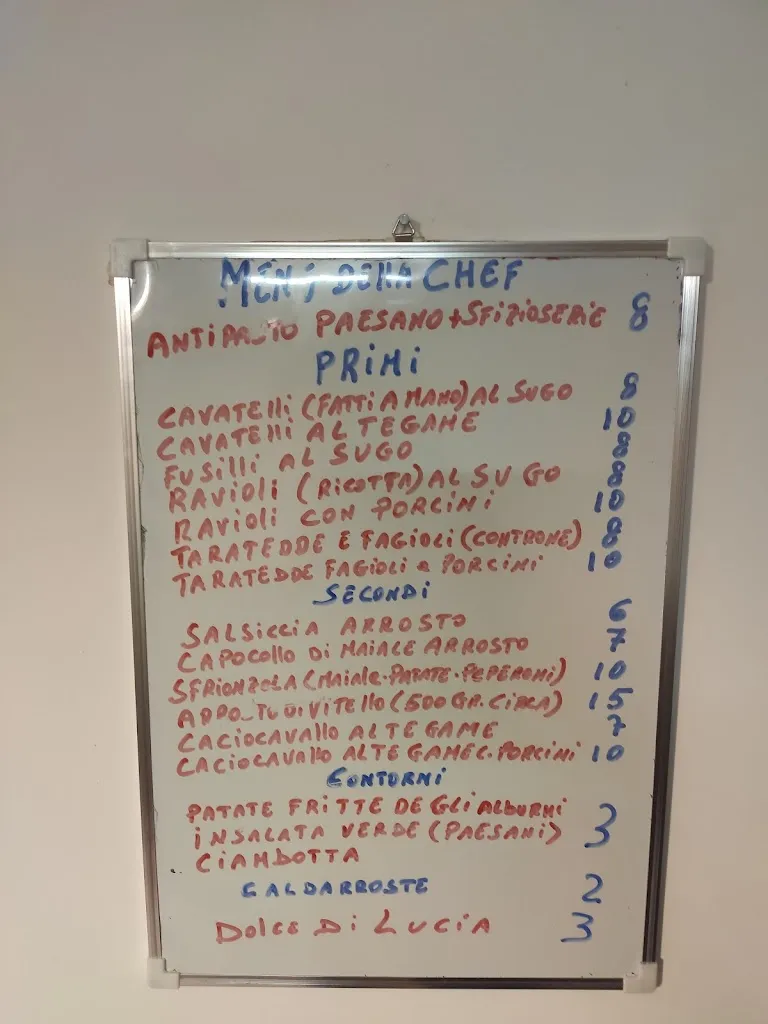 MENÙ DELLA CHEF
ANTIPASTO PAESANO + SFIZIOSERIE 8
PRIMI
CAVATELLI (FATTI A MANO) AL SUGO 8
CAVATELLI AL TEGAME 10
FUSILLI AL SUGO 8
RAVIOLI (RICOTTA) AL SUGO 8
RAVIOLI CON PORCINI 10
TARATEDDE E FAGIOLI (CONTRONE) 8
TARATEDDE FAGIOLI e PORCINI 10
SECONDI
SALSICCIA ARROSTO 6
CAPOCOLLO DI MAIALE ARROSTO 7
SFRIONZOLA (MAIALE-PATATE-PEPERONI) 10
DI VITELLO (500 GR. CIRCA) 15
CACIOCAVALLO AL TEGAME 7
CACIOCAVALLO AL TEGAME C. PORCINI 10
CONTORNI
PATATE FRITTE DEGLI ALBURNI
INSALATA VERDE (PAESANI) 3
CIAMBOTTA
CALDARROSTE 2
DOLCE DI LUCIA 3